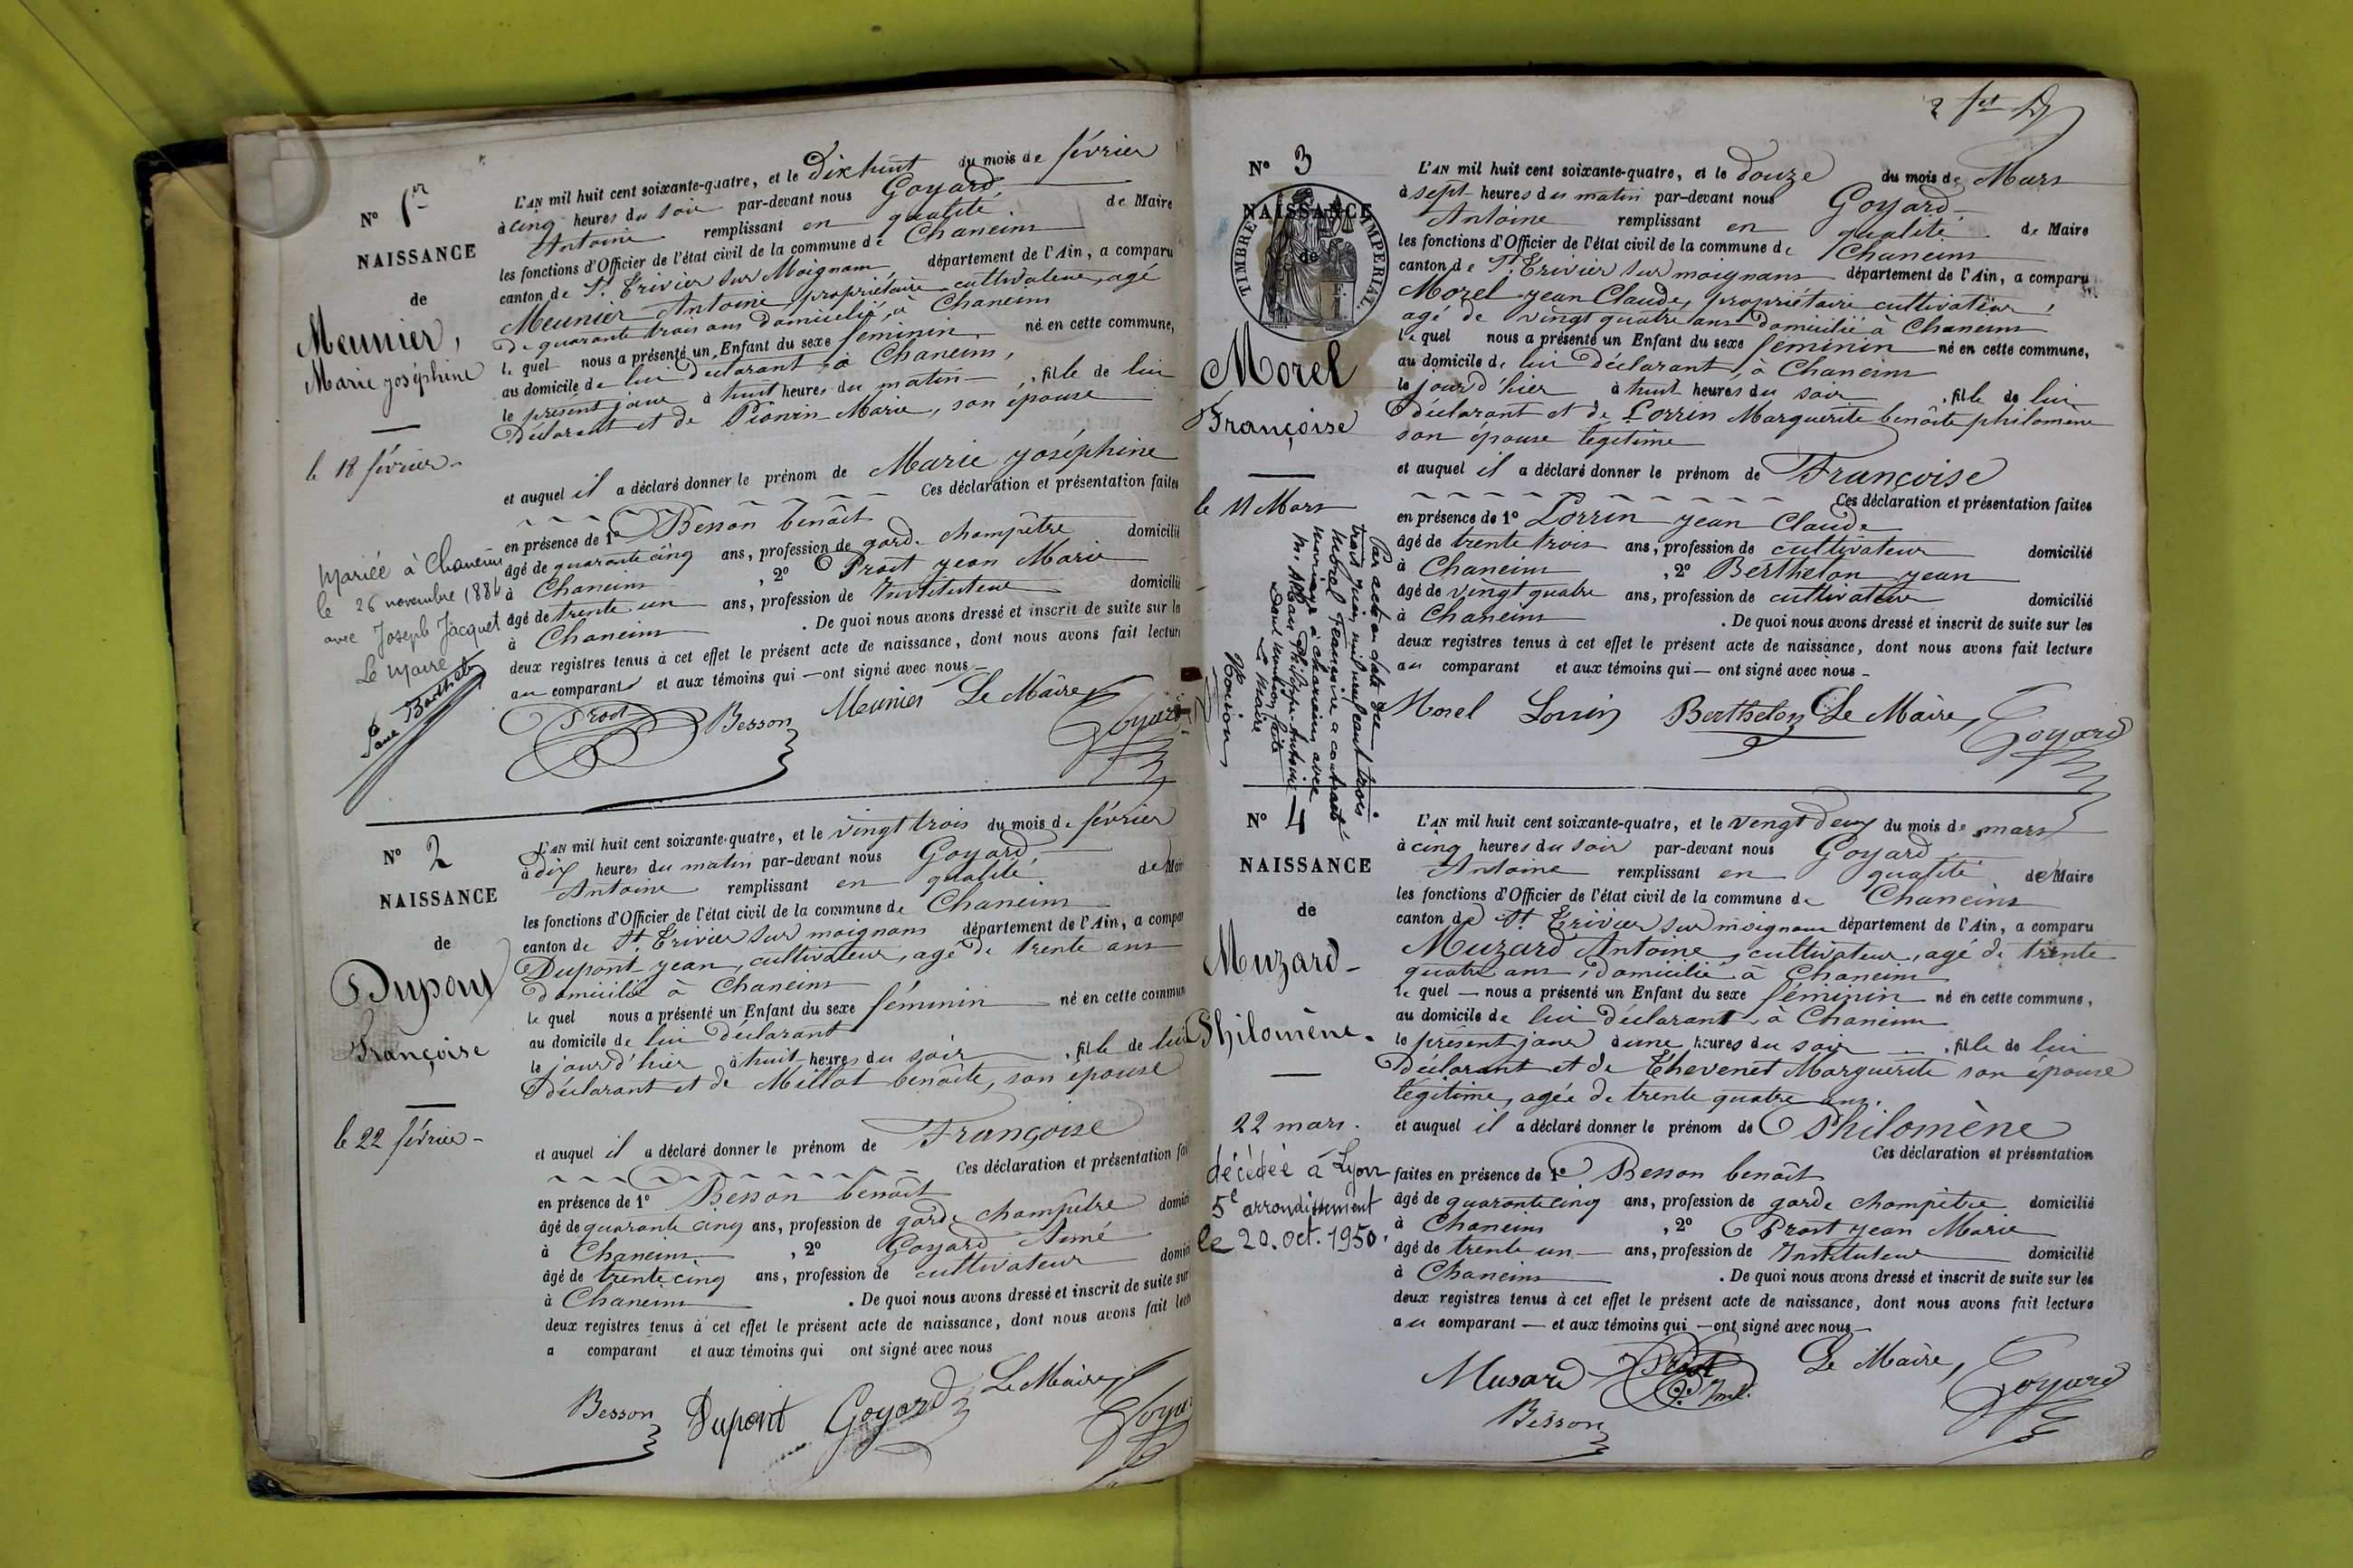 N° 1er
NAISSANCE
de
Meunier,
Marie joséphine
le 18 février
Mariée à Chaneins
le 26 novembre 1884
avec Joseph Jacquet
Le Maire
L'AN mil huit cent soixante-quatre, et le Dix huit du mois de février
à cinq heures du soir par-devant nous Goyard,
Antoine remplissant en qualité de Maire
les fonctions d'Officier de l'état civil de la commune de Chaneins
canton de St. Trivier sur Moignans département de l'Ain, a comparu
Meunier Antoine, propriétaire cultivateur, agé
de quarante trois ans domicilié, à Chaneins
le quel nous a présenté un Enfant du sexe féminin né en cette commune,
au domicile de lui déclarant à Chaneins,
le présent jour à huit heures du matin, fille de lui
Déclarant et de Pionin Marie, son épouse
et auquel il a déclaré donner le prénom de Marie joséphine
Ces déclaration et présentation faites
en présence de 1° Besson benoît
âgé de quarante cinq ans, profession de garde champêtre domicilié
à Chaneins, 2° Prost jean Marie
âgé de trente un ans, profession de Instituteur domicilié
à Chaneins. De quoi nous avons dressé et inscrit de suite sur les
deux registres tenus à cet effet le présent acte de naissance, dont nous avons fait lecture
au comparant et aux témoins qui — ont signé avec nous —
Prost Besson Meunier Le Maire, Goyard
N° 2
NAISSANCE
de
Dupont
Françoise
le 22 février -
L'AN mil huit cent soixante-quatre, et le vingt trois du mois de février
à dix heures du matin par-devant nous Goyard,
Antoine remplissant en qualité de Maire
les fonctions d'Officier de l'état civil de la commune de Chaneins
canton de St. Trivier sur moignans département de l'Ain, a compar
Dupont jean, cultivateur, agé de trente ans
domicilié à Chaneins
le quel nous a présenté un Enfant du sexe féminin né en cette commun
au domicile de lui déclarant
le jour d'hier à huit heures du soir, fille de lui
déclarant et de Millat benoîte, son épouse
et auquel il a déclaré donner le prénom de Françoise
Ces déclaration et présentation fai
en présence de 1° Besson benoît
âgé de quarante cinq ans, profession de garde champêtre domici
à Chaneins, 2° Goyard Aimé
âgé de trente cinq ans, profession de cultivateur domici
à Chaneins. De quoi nous avons dressé et inscrit de suite sur
deux registres tenus à cet effet le présent acte de naissance, dont nous avons fait lect
a comparant et aux témoins qui ont signé avec nous
Besson Dupont Goyard Le Maire, Goyar
N° 3
NAISSANCE
de
TIMBRE IMPERIAL.
Morel
Françoise
le 11 Mars
Par acte en date du
trois juin mil neuf cent trois
Morel Françoise a contracté
mariage à Chaneins avec
Philippe Antoine
Le Maire
L'AN mil huit cent soixante-quatre, et le douze du mois de Mars
à sept heures du matin par-devant nous Goyard,
Antoine remplissant en qualité de Maire
les fonctions d'Officier de l'état civil de la commune de Chaneins
canton de St. Trivier sur moignans département de l'Ain, a comparu
Morel jean Claude, propriétaire cultivateur,
agé de vingt quatre ans domicilié à Chaneins
le quel nous a présenté un Enfant du sexe féminin né en cette commune,
au domicile de lui déclarant, à Chaneins
le jour d'hier à huit heures du soir, fille de lui
déclarant et de Lorrin Marguerite benoîte philomène
son épouse légitime
et auquel il a déclaré donner le prénom de Françoise
Ces déclaration et présentation faites
en présence de 1° Lorrin jean Claude
âgé de trente trois ans, profession de cultivateur domicilié
à Chaneins, 2° Berthelon jean
âgé de vingt quatre ans, profession de cultivateur domicilié
à Chaneins. De quoi nous avons dressé et inscrit de suite sur les
deux registres tenus à cet effet le présent acte de naissance, dont nous avons fait lecture
au comparant et aux témoins qui — ont signé avec nous -
Morel Lorrin Berthelon Le Maire, Goyard
N° 4
NAISSANCE
de
Muzard -
Philomène.
22 mars.
décédée à Lyon
5e arrondissement
le 20. oct. 1950.
L'AN mil huit cent soixante-quatre, et le vingt deux du mois de mars
à cinq heures du soir par-devant nous Goyard
Antoine remplissant en qualité de Maire
les fonctions d'Officier de l'état civil de la commune de Chaneins
canton de St. Trivier sur moignans département de l'Ain, a comparu
Muzard Antoine, cultivateur, agé de trente
quatre ans, domicilié à Chaneins
le quel — nous a présenté un Enfant du sexe féminin né en cette commune,
au domicile de lui déclarant, à Chaneins
le présent jour à une heures du soir, fille de lui
Déclarant et de Thevenet Marguerite son épouse
légitime, agée de trente quatre ans.
et auquel il a déclaré donner le prénom de Philomène
Ces déclaration et présentation
faites en présence de 1° Besson benoît
âgé de quarante cinq ans, profession de garde champêtre domicilié
à Chaneins, 2° Prost jean Marie
âgé de trente un — ans, profession de Instituteur domicilié
à Chaneins. De quoi nous avons dressé et inscrit de suite sur les
deux registres tenus à cet effet le présent acte de naissance, dont nous avons fait lecture
au comparant — et aux témoins qui — ont signé avec nous —
Musard Prost Le Maire, Goyard
Besson